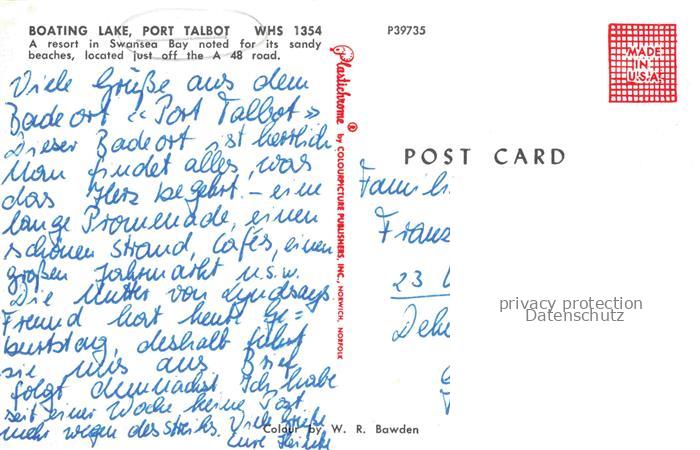 BOATING LAKE, PORT TALBOT WHS 1354
A resort in Swansea Bay noted for its sandy
beaches, located just off the A 48 road.
P39735
MADE
IN
U.S.A.
Viele Grüße aus dem
Badeort "Port Talbot"
Dieser Badeort ist herrlich.
Man findet alles, was
das Herz begehrt. – eine
lange Promenade, einen
schönen Strand, Cafés, einen
großen Jahrmarkt u.s.w.
Die Mutter von Lyndsays
Freund hat heute Ge=
burtstag, deshalb führt
sie uns aus. Brief
folgt demnächst. Ich habe
seit einer Woche keine Post
mehr wegen des Streiks. Viele Grüße
Eure
Plastichrome ® by COLOURPICTURE PUBLISHERS, INC., NORWICH, NORFOLK
Colour by W. R. Bawden
POST CARD
Famili
Franz
23
privacy protection
Datenschutz